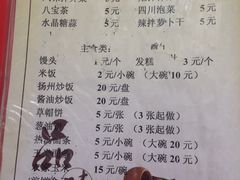 八宝茶 5元 四川泡菜 5元
水晶糖蒜 5元 辣拌萝卜干 5元
主食类:
馒头 1元/个 发糕 3元/个
米饭 2元/小碗 (大碗10元)
扬州炒饭 20元/盘
酱油炒饭 20元/盘
草帽饼 5元/张 (3张起做)
葱油 5元/张 (3张起做)
热 面条 5元/小碗 (大碗20元)
5元/小碗 (大碗20元)
玉米 15元/碗